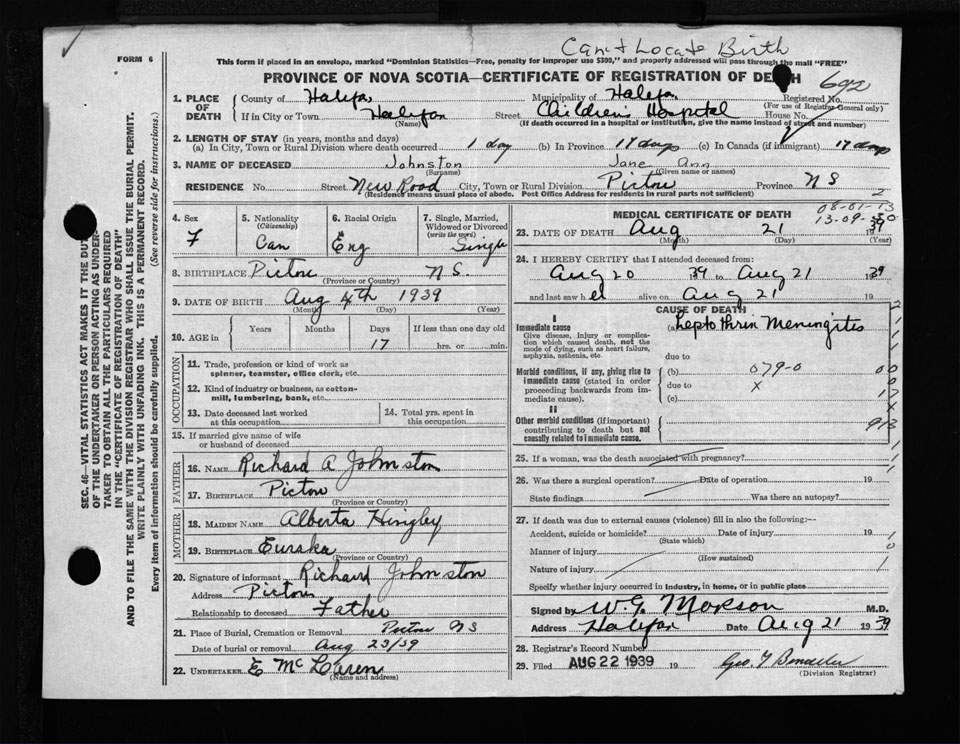 Can't Locate Birth
FORM 6
This form if placed in an envelope, marked "Dominion Statistics—Free, penalty for improper use $300," and properly addressed will pass through the mail "FREE"
PROVINCE OF NOVA SCOTIA—CERTIFICATE OF REGISTRATION OF DEATH
692
1. PLACE OF DEATH
County of Halifax Municipality of Halifax Registered No.
(For use of Registrar General only)
If in City or Town Halifax Street Children's Hospital House No.
(Name) (If death occurred in a hospital or institution, give the name instead of street and number)
2. LENGTH OF STAY (in years, months and days)
(a) In City, Town or Rural Division where death occurred 1 day (b) In Province 17 days (c) In Canada (if immigrant) 17 days
3. NAME OF DECEASED Johnston Jane Ann
(Surname) (Given name or names)
RESIDENCE No. Street New Road City, Town or Rural Division Pictou Province N S
(Residence means usual place of abode. Post Office Address for residents in rural parts not sufficient)
2
4. Sex
F
5. Nationality
(Citizenship)
Can
6. Racial Origin
Eng
7. Single, Married, Widowed or Divorced
(write the word)
Single
8. BIRTHPLACE Pictou N S.
(Province or Country)
9. DATE OF BIRTH Aug 4th 1939
(Month) (Day) (Year)
10. AGE in
Years Months Days If less than one day old
17 hrs. or min.
OCCUPATION
11. Trade, profession or kind of work as
spinner, teamster, office clerk, etc.
12. Kind of industry or business, as cotton-
mill, lumbering, bank, etc.
13. Date deceased last worked
at this occupation
14. Total yrs. spent in
this occupation
15. If married give name of wife
or husband of deceased
FATHER
16. NAME Richard A Johnston
17. BIRTHPLACE Pictou
(Province or Country)
MOTHER
18. MAIDEN NAME Alberta Hingley
19. BIRTHPLACE Eureka
(Province or Country)
20. Signature of informant Richard Johnston
Address Pictou
Relationship to deceased Father
21. Place of Burial, Cremation or Removal Pictou N S
Date of burial or removal Aug 23/39
22. UNDERTAKER E McLaren
(Name and address)
08-01-13
13-09-30
MEDICAL CERTIFICATE OF DEATH
23. DATE OF DEATH Aug 21 1939
(Month) (Day) (Year)
24. I HEREBY CERTIFY that I attended deceased from
Aug 20 1939 to Aug 21 1939
and last saw her alive on Aug 21 19
CAUSE OF DEATH
I
Immediate cause
Give disease, injury or complica-
tion which caused death, not the
mode of dying, such as heart failure,
asphyxia, asthenia, etc.
(a) Leptothrix Meningitis
due to
Morbid conditions, if any, giving rise to
immediate cause (stated in order
proceeding backwards from im-
mediate cause).
(b) 079-0
due to X
(c)
II
Other morbid conditions (if important)
contributing to death but not
causally related to immediate cause.
25. If a woman, was the death associated with pregnancy?
26. Was there a surgical operation? Date of operation 19
State findings Was there an autopsy?
27. If death was due to external causes (violence) fill in also the following:—
Accident, suicide or homicide? Date of injury 19
(State which)
Manner of injury
(How sustained)
Nature of injury
Specify whether injury occurred in industry, in home, or in public place
Signed by W. G. Morson M.D.
Address Halifax Date Aug 21 1939
28. Registrar's Record Number
29. Filed AUG 22 1939 19
(Division Registrar)
SEC. 46—VITAL STATISTICS ACT MAKES IT THE DUTY
OF THE UNDERTAKER OR PERSON ACTING AS UNDER-
TAKER TO OBTAIN ALL THE PARTICULARS REQUIRED
IN THE "CERTIFICATE OF REGISTRATION OF DEATH"
AND TO FILE THE SAME WITH THE DIVISION REGISTRAR WHO SHALL ISSUE THE BURIAL PERMIT.
WRITE PLAINLY WITH UNFADING INK. THIS IS A PERMANENT RECORD.
Every item of information should be carefully supplied. (See reverse side for instructions.)